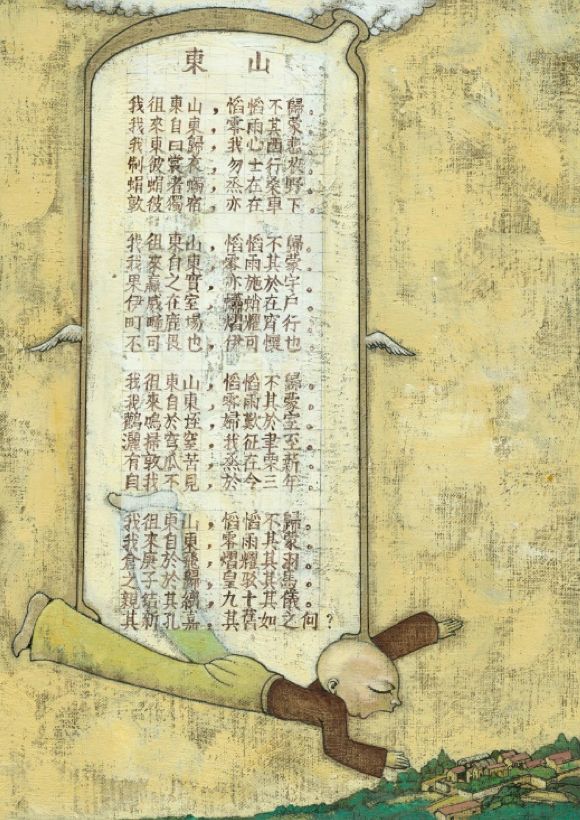 東山
我徂東山，慆慆不歸。
我來自東，零雨其蒙。
我東曰歸，我心西悲。
制彼裳衣，勿士行枚。
蜎蜎者蠋，烝在桑野。
敦彼獨宿，亦在車下。
我徂東山，慆慆不歸。
我來自東，零雨其蒙。
果臝之實，亦施於宇。
伊威在室，蠨蛸在戶。
町畽鹿場，熠耀宵行。
不可畏也，伊可懷也。
我徂東山，慆慆不歸。
我來自東，零雨其蒙。
鸛鳴於垤，婦歎於室。
灑掃穹窒，我征聿至。
有敦瓜苦，烝在栗薪。
自我不見，於今三年。
我徂東山，慆慆不歸。
我來自東，零雨其蒙。
倉庚於飛，熠耀其羽。
之子於歸，皇駁其馬。
親結其縭，九十其儀。
其新孔嘉，其舊如之何？